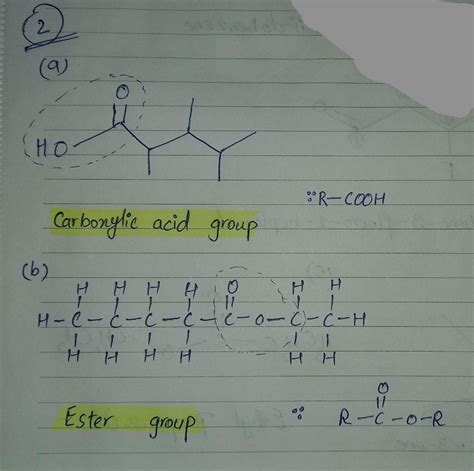 2
(a)
O
HO
⠛R-COOH
Carboxylic acid group
(b)
H H H H O H H
H-C-C-C-C-C-O-C-C-H
H H H H H H
O
Ester group :: R-C-O-R